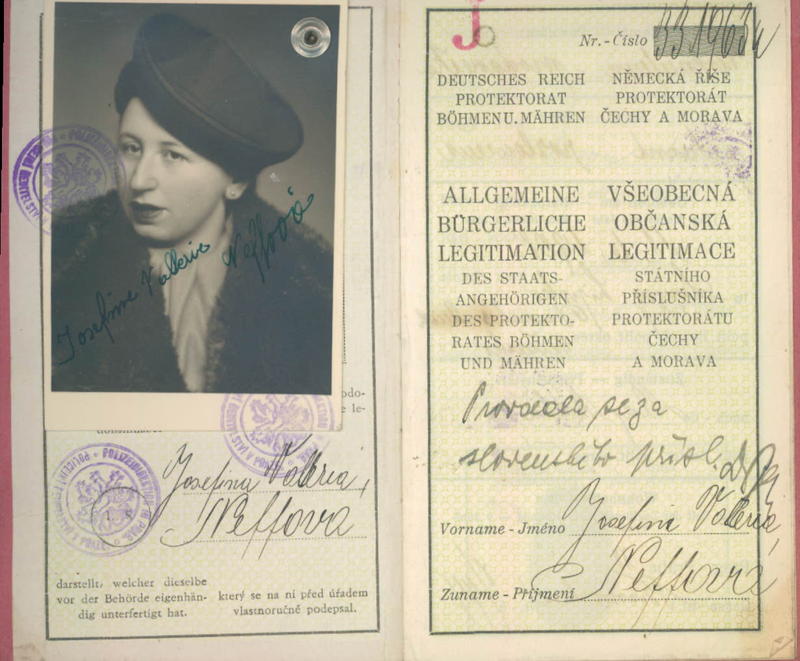 Josefine Valerie Neffová
darstellt, welcher dieselbe
vor der Behörde eigenhän-
dig unterfertigt hat.
který se na ní před úřadem
vlastnoručně podepsal.
Josefina Valeria,
Neffova
J
Nr. - Číslo
DEUTSCHES REICH
PROTEKTORAT
BÖHMEN U. MÄHREN
NĚMECKÁ ŘÍŠE
PROTEKTORÁT
ČECHY A MORAVA
ALLGEMEINE
BÜRGERLICHE
LEGITIMATION
DES STAATS-
ANGEHÖRIGEN
DES PROTEKTO-
RATES BÖHMEN
UND MÄHREN
VŠEOBECNÁ
OBČANSKÁ
LEGITIMACE
STÁTNÍHO
PŘÍSLUŠNÍKA
PROTEKTORÁTU
ČECHY
A MORAVA
Provdala se za
slovenského přísl.
Vorname - Jméno Josefina Valeria,
Zuname - Příjmení Neffová